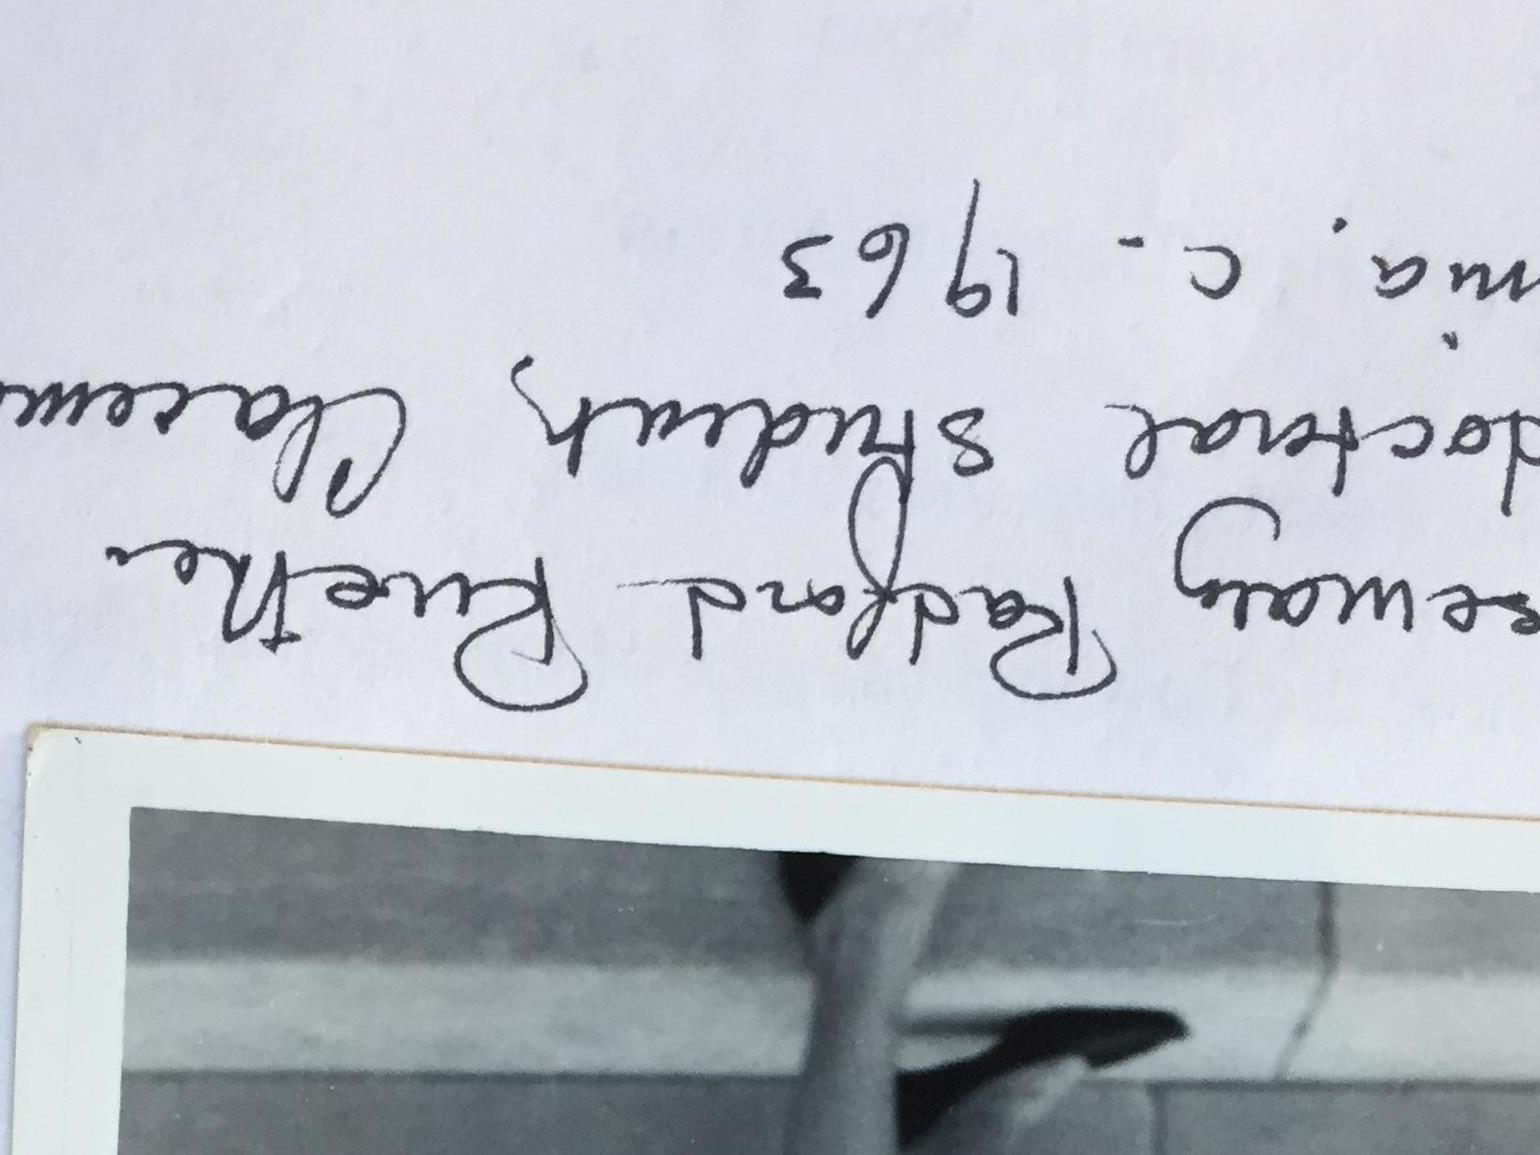 semary Radford Ruether
doctoral student, Clarem
nia, c. 1963